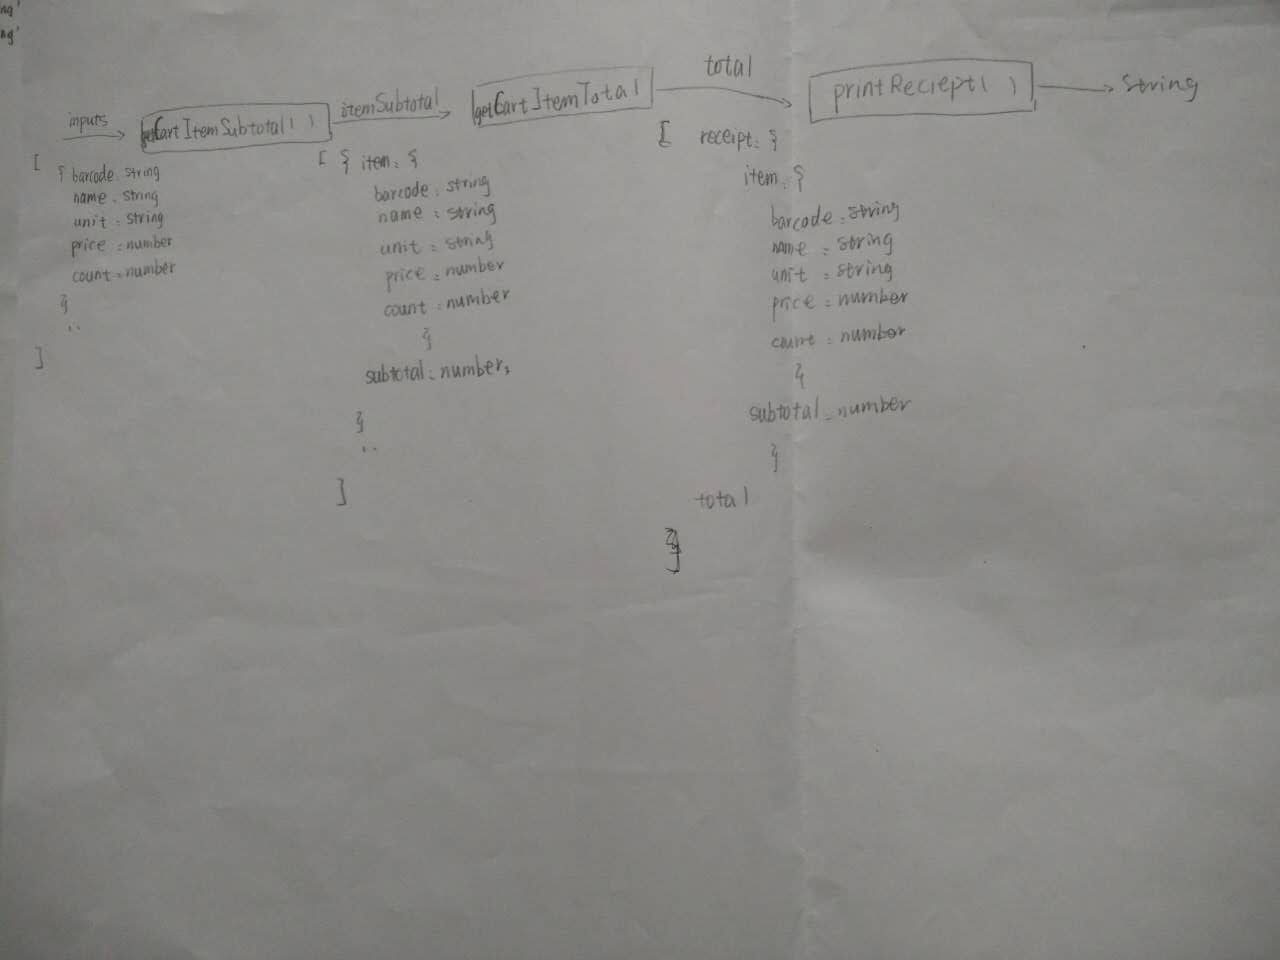 ng'
ng'
inputs
getCartItemSubtotal( )
itemSubtotal
getCartItemTotal
total
printReciept( )
string
[
{ barcode: string
name: string
unit: string
price: number
count: number
}
..
]
[ { item: {
barcode: string
name: string
unit: string
price: number
count: number
}
subtotal: number,
}
..
]
[ receipt: {
item: {
barcode: string
name: string
unit: string
price: number
count: number
}
subtotal: number
}
total
}]